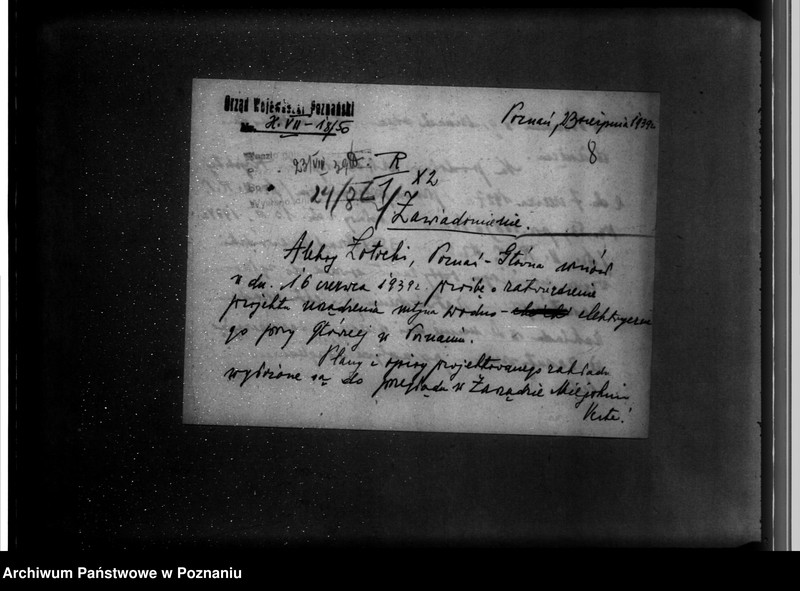 Urząd Wojewódzki Poznański
Nr. H. VII - 18/50
Poznań, 23 sierpnia 1939r.
8
23/VIII 39
R
24/8
x2
Zawiadomienie.
Aleksy Żołocki, Poznań - Główna wniósł
w dn. 16 czerwca 1939r. prośbę o zatwierdzenie
projektu urządzenia młyna wodno - elektryczne
go przy Głównej w Poznaniu.
Plany i opisy projektowanego zakładu
wyłożone są do przeglądu w Zarządzie Miejskim
Verte!
Archiwum Państwowe w Poznaniu